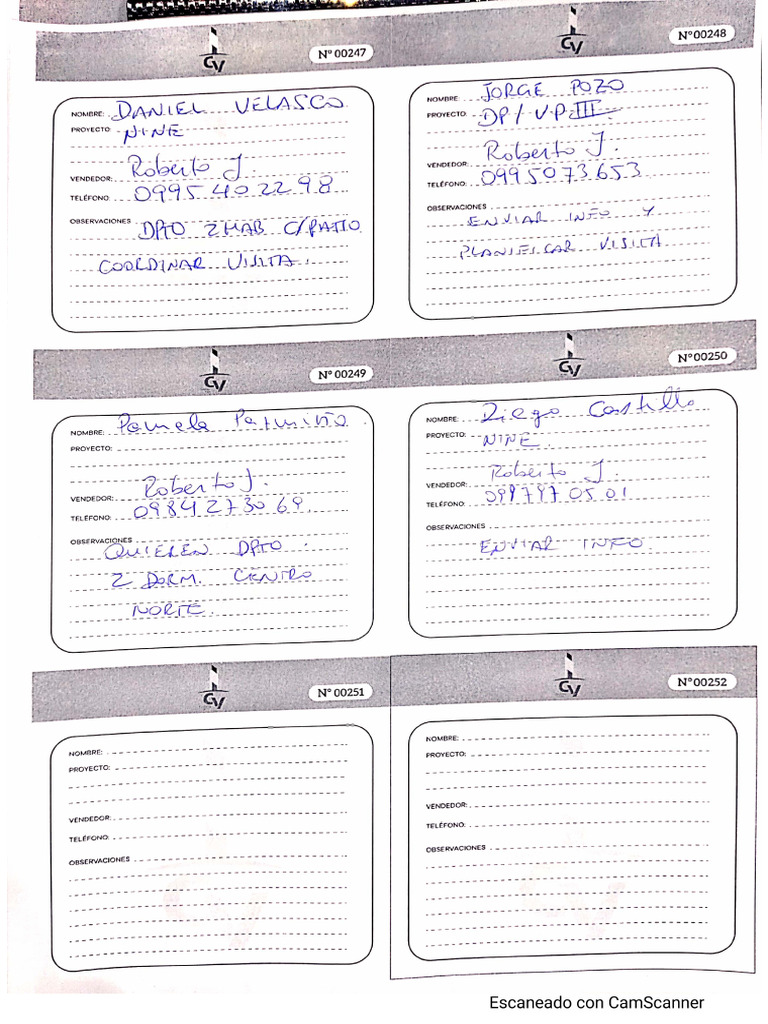 GV
N° 00247
NOMBRE: DANIEL VELASCO
PROYECTO: NINE
VENDEDOR: Roberto J.
TELÉFONO: 0995402298
OBSERVACIONES
DPTO 2 HAB C/PATIO
COORDINAR VISITA.
GV
N° 00248
NOMBRE: JORGE POZO
PROYECTO: DP/ V.P. III
VENDEDOR: Roberto J.
TELÉFONO: 0995073653
OBSERVACIONES
ENVIAR INFO Y
PLANIFICAR VISITA
GV
N° 00249
NOMBRE: Pamela
PROYECTO:
VENDEDOR: Roberto J.
TELÉFONO: 0984273069.
OBSERVACIONES
QUIEREN DPTO
2 DORM. CENTRO
NORTE.
GV
N° 00250
NOMBRE: Diego Castillo
PROYECTO: NINE.
VENDEDOR: Roberto J.
TELÉFONO: 0997970501
OBSERVACIONES
ENVIAR INFO.
GV
N° 00251
NOMBRE:
PROYECTO:
VENDEDOR:
TELÉFONO:
OBSERVACIONES
GV
N° 00252
NOMBRE:
PROYECTO:
VENDEDOR:
TELÉFONO:
OBSERVACIONES
Escaneado con CamScanner